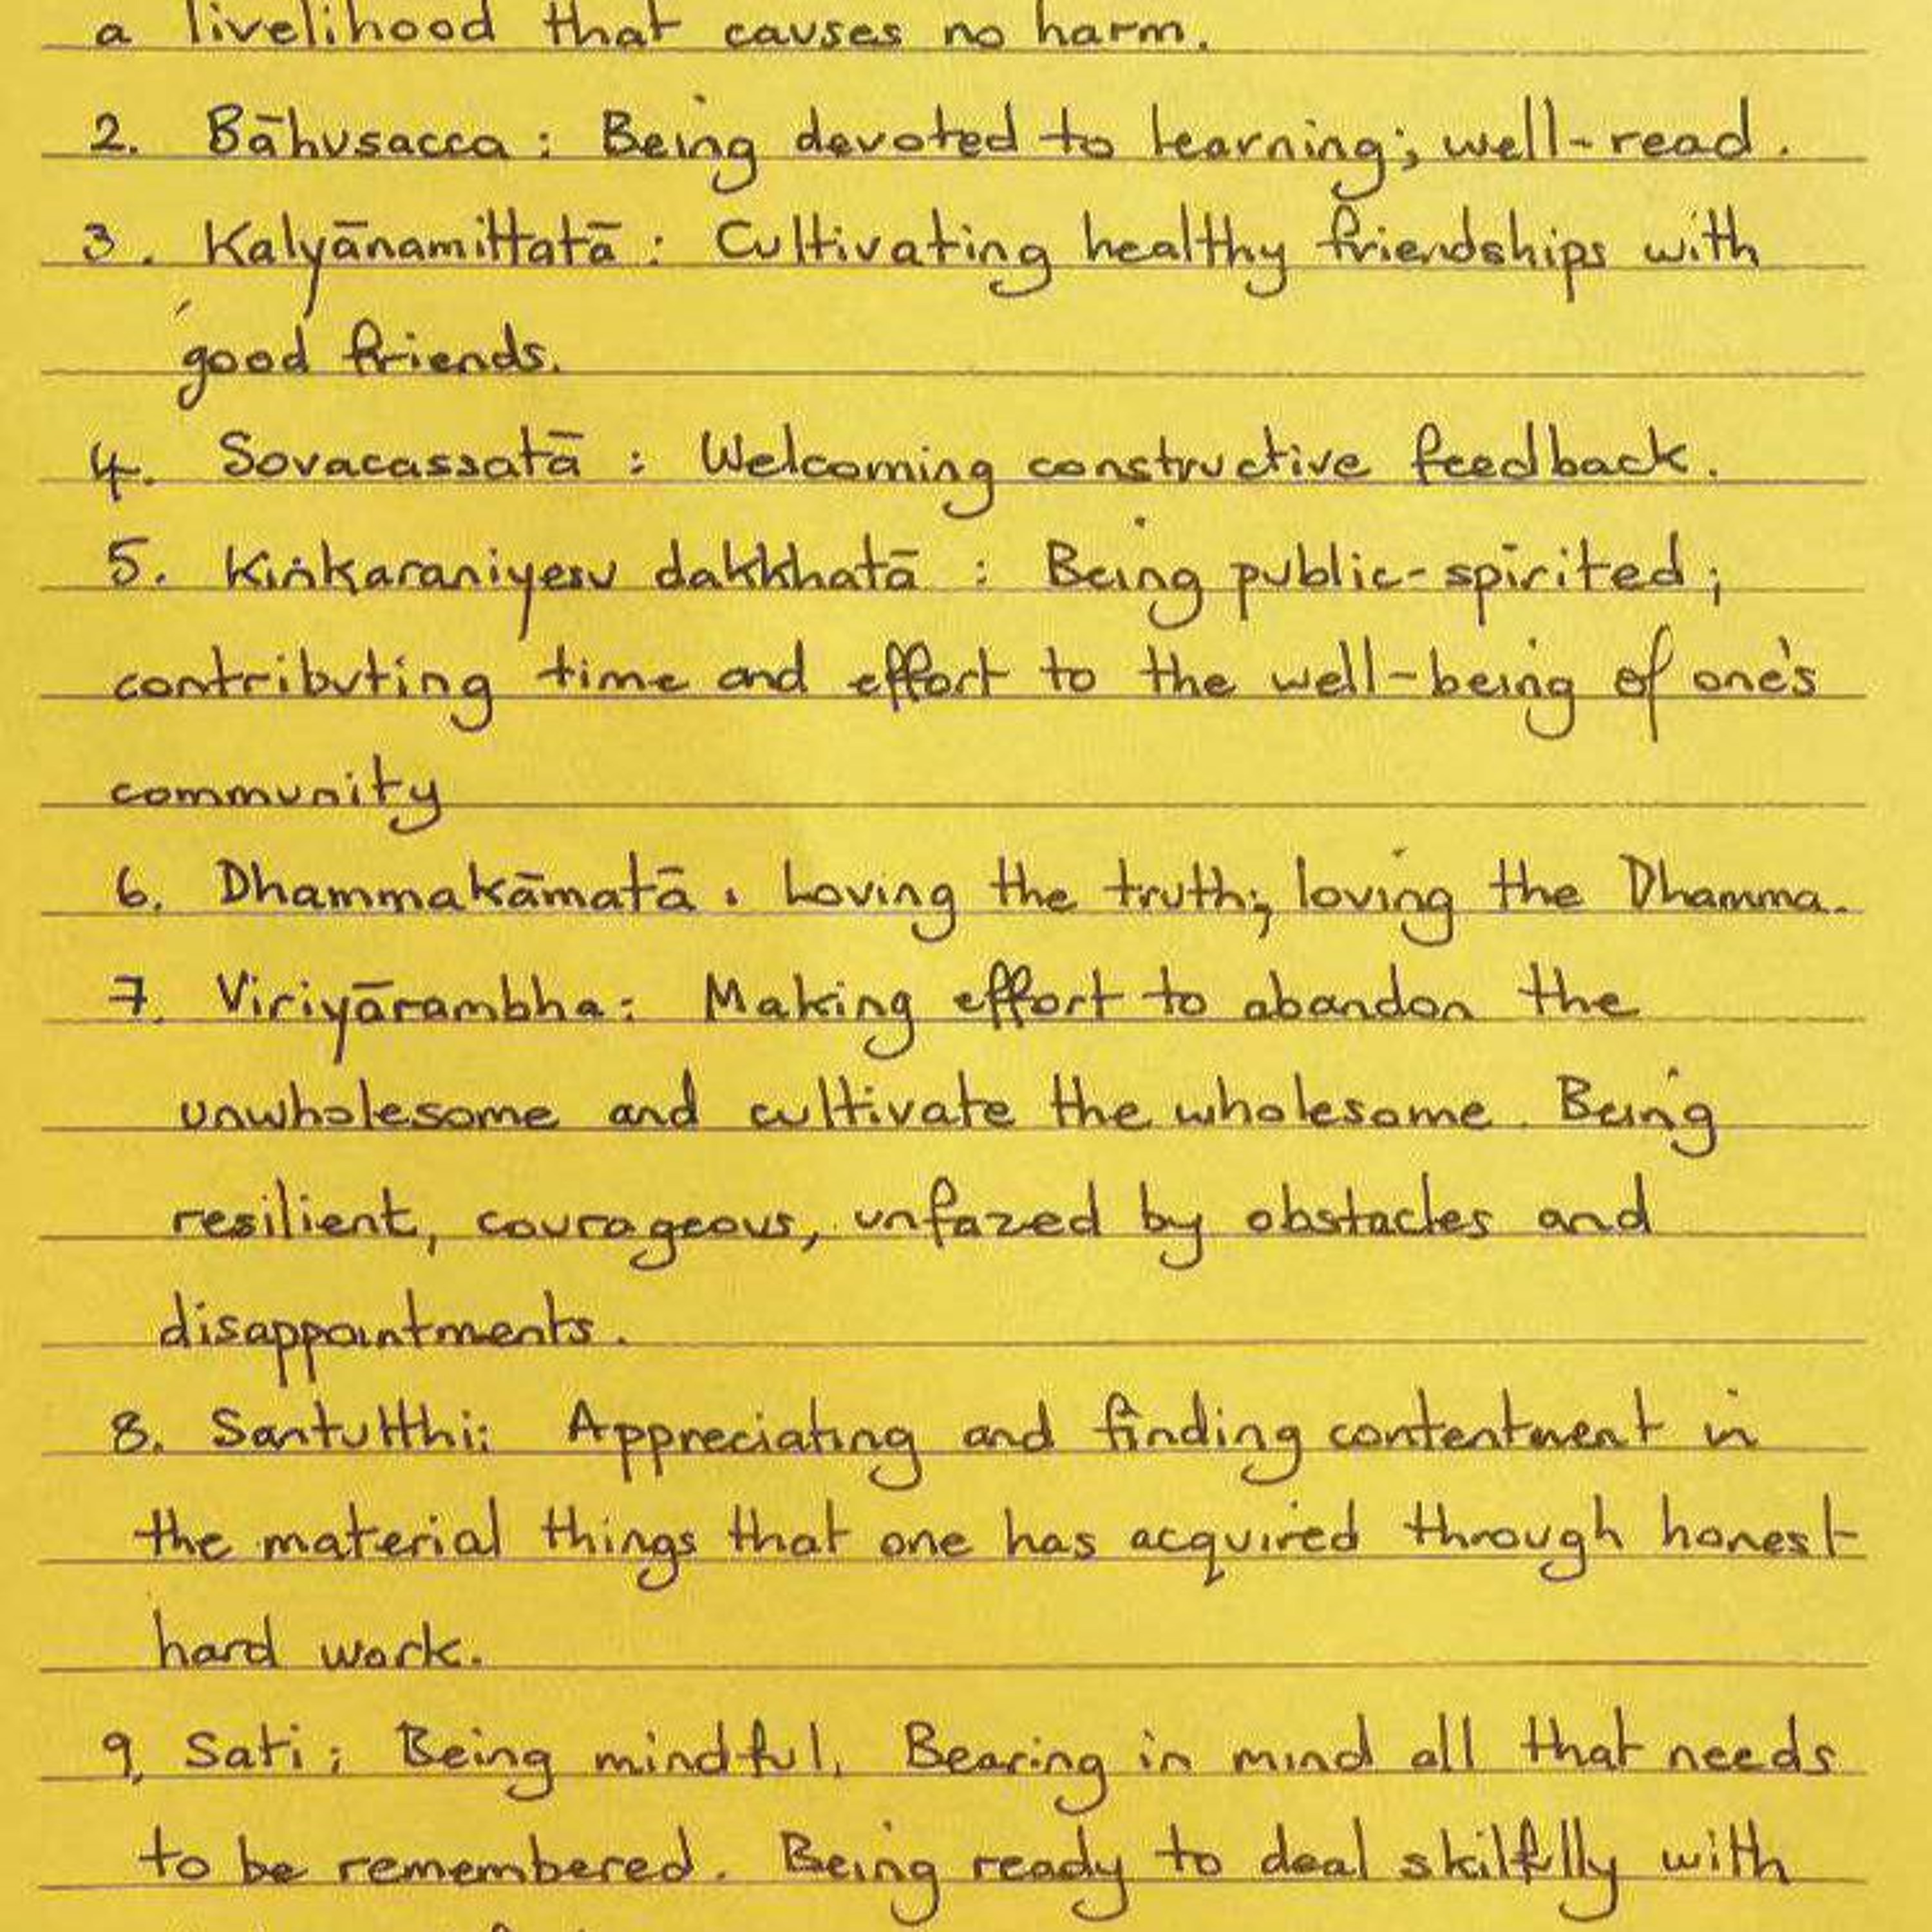 a livelihood that causes no harm.
2. Bāhusacca : Being devoted to learning; well-read.
3. Kalyānamittatā : Cultivating healthy friendships with
good friends.
4. Sovacassatā : Welcoming constructive feedback.
5. Kiṅkaraniyesu dakkhatā : Being public-spirited;
contributing time and effort to the well-being of one's
community
6. Dhammakāmatā : Loving the truth; loving the Dhamma.
7. Viriyārambha: Making effort to abandon the
unwholesome and cultivate the wholesome. Being
resilient, courageous, unfazed by obstacles and
disappointments.
8. Santutthi: Appreciating and finding contentment in
the material things that one has acquired through honest
hard work.
9, Sati; Being mindful, Bearing in mind all that needs
to be remembered. Being ready to deal skilflly with